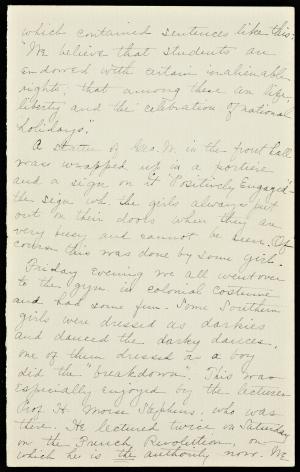 which contained sentences like this:
"We believe that students are
endowed with certain inalienable
rights, that among these are life,
liberty and the celebration of national
holidays."
A statue of Geo. W. in the front hall
was wrapped up in a portiere
and a sign on it "Positively Engaged"
the sign wh. the girls always put
out on their doors when they are
very busy and cannot be seen. Of
course this was done by some girl.
Friday evening we all went over
to the gym in colonial costume
and had some fun. Some Southern
girls were dressed as darkies
and danced the darky dances.
One of them dressed as a boy
did the "breakdown". This was
especially enjoyed by the lecturer
Prof. H. Morse Stephens, who was
there. He lectured twice on Saturday
on the French Revolution, on
which he is the authority now. We